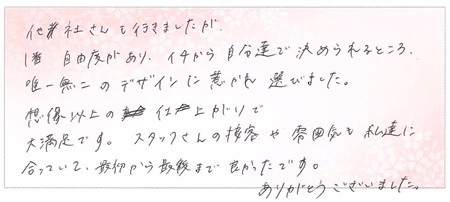 他社さんも行きましたが、
1番 自由度があり、イチから自分達で決められるところ、
唯一無二のデザインに惹かれ 選びました。
想像以上の 仕上がりで
大満足です。スタッフさんの接客や 雰囲気も 私達に
合っていて、最初から最後まで良かったです。
ありがとうございました。